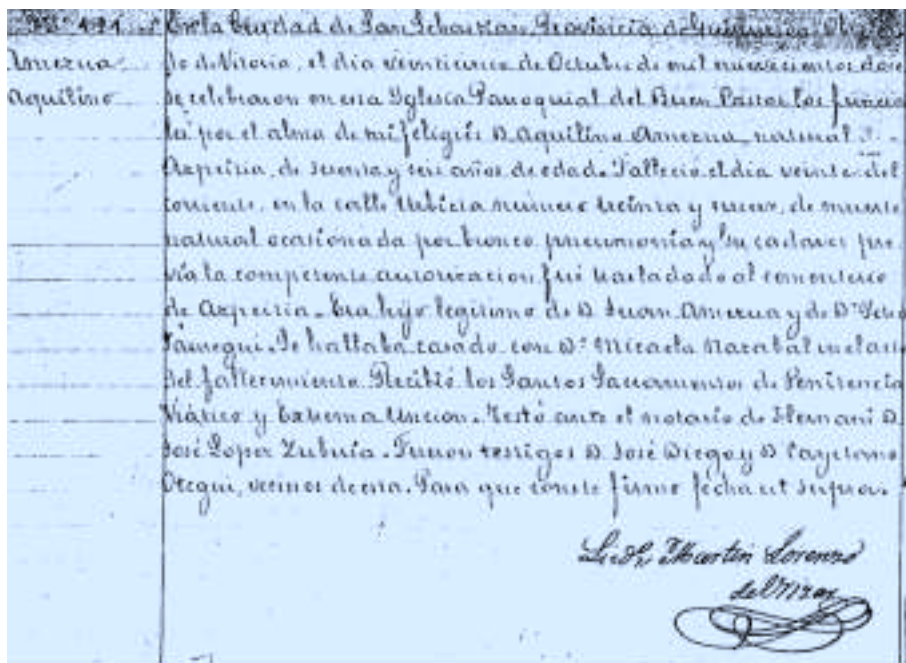 Nº 491
Amezua
Aquilino
En la Ciudad de San Sebastian, Provincia de Guipuzcoa, Obispa
do de Vitoria, el dia veinticinco de Octubre de mil novecientos doce
se celebraron en esta Yglesia Parroquial del Buen Pastor los funera
les por el alma de mi feligrés D. Aquilino Amezua, natural
Azpeitia, de sesenta y seis años de edad. Falleció el dia veinte del
corriente, en la calle Urbieta número treinta y, de muerte
natural ocasionada por bronco pneumonía y su cadaver pre
vía la competente autorizacion fué trasladado al cementerio
de Azpeitia. Era hijo legitimo de D. Juan Amezua y de Dª
Jauregui. Se hallaba casado con Dª Micaela
del fallecimiento. Recibió los Santos Sacramentos de Penitencia
Viático y Extrema Uncion. Testó ante el notario de Hernani D.
José Lopez Zubiría. Fueron testigos D. José Diego y D. Cayetano
Otegui, vecinos de esta. Para que conste firmo fecha ut supra.
Martin Lorenzo
de